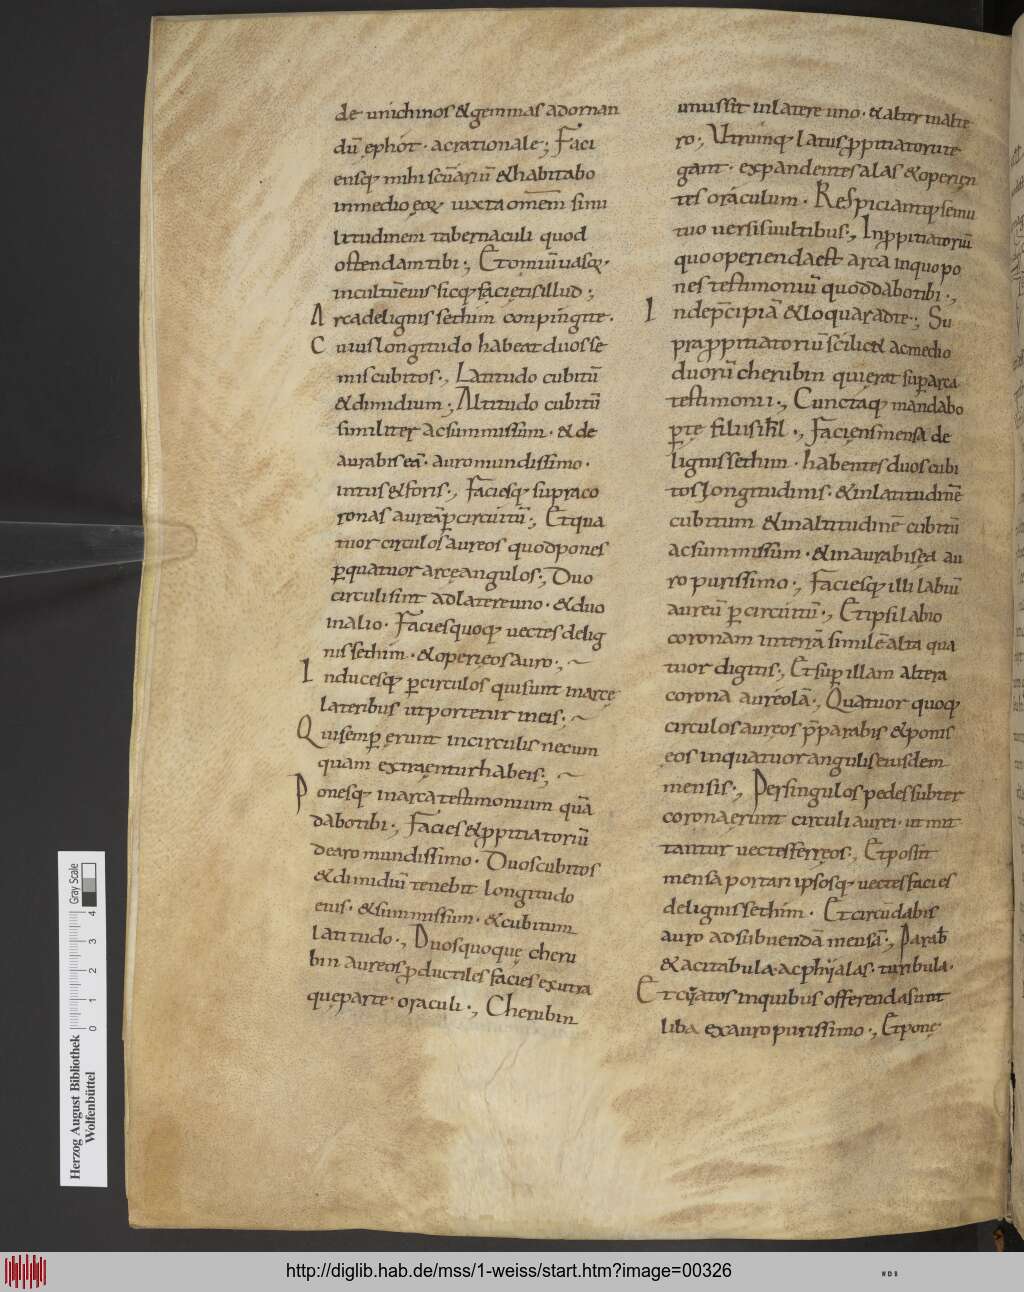 de unichinos & gemmas adornan
dū ephót · ac rationale ·; Faci
ensq; mihi scūariū & habitabo
in medio eoꝝ iuxta omēm simi
litudinem tabernaculi quod
ostendam tibi ·; Et omiūm uasoꝝ
in cultū eius sicq; facietis illud ·;
Arca de lignis sethim conpingite ·
Cuius longitudo habeat duos se
mis cubitos ·; Latitudo cubitū
& dimidium ·; Altitudo cubitū
similiter ac summissum · & de
aurabis eā · auro mundissimo ·
intus & foris ·; Faciesq; supra co
ronas aureā p̱ circúitū ·; Et qua
tuor circulos aureos quod pones
p̱ quatuor arce angulos ·; Duo
circuli sint ad latere uno · & duo
in alio · Facies quoq; uectes de lig
nis sethim · & operies os auro ·;
Inducesq; p̱ circulos qui sunt in arce
lateribus ut portetur in eis ·;
Qui semp̱ erunt in circulis nec um
quam extraentur habeis ·;
Ponesq; in arca testimonium quā
dabo tibi ·; Facies & p̱pitiatoriū
de aro mundissimo · Duos cubitos
& dimidiū tenebit longitudo
eius · & summissum · & cubitum
latitudo ·; Duos quoque cheru
bin aureos p̱ductiles facies ex utra
que parte · oraculi ·; Cherubin
unus sit in latere uno · & alter in alte
ro ·; Utrumq; latus p̱pitiatorii te
gant · expandentes alas & operien
tes oráculum · Respiciantq; se mu
tuo uersis uultibus ·; In p̱pitiatoriū
quo operienda est arca in quo po
nes testimoniū quod dabo tibi ·;
Inde p̄cipiā & loquar ad te ·; Su
pra p̱pitiatoriū scilic& ac medio
duorū cherubin qui erat sup̱ arca
testimonii ·; Cuncta q; mandabo
p̱ te filiis ih̄l ·; Faciens mensa de
lignis sethim · habentes duos cubi
tos longitudinis · & in latitudinē
cubitum & in altitudinē cubitū
ac summissum · & inaurabis ea au
ro purissimo ·; Faciesq; illi labiū
aureū p̱ circúitū ·; Et ipsi labio
coronam interrā similē alta qua
tuor digitis ·; Et sup̱ illam altera
corona auréolā ·; Quatuor quoq;
circulos aureos p̄parabis & ponis
eos in quatuor angulis eiusdem
mensis ·; Per singulos pedes subter
corona erunt circuli aurei · ut mit
tantur uectes ferreos ·; Et possit
mensa portari ipsosq; uectes facies
de lignis sethim · Et circūdabis
auro ad subuendā mensā ·; Parab̄
& acitabula · ac phyalas · turibula ·
Et cyatos in quibus offerenda sunt
liba ex auro purissimo ·; Et pone
Herzog August Bibliothek
Wolfenbüttel
0 1 2 3 4
Gray Scale
http://diglib.hab.de/mss/1-weiss/start.htm?image=00326